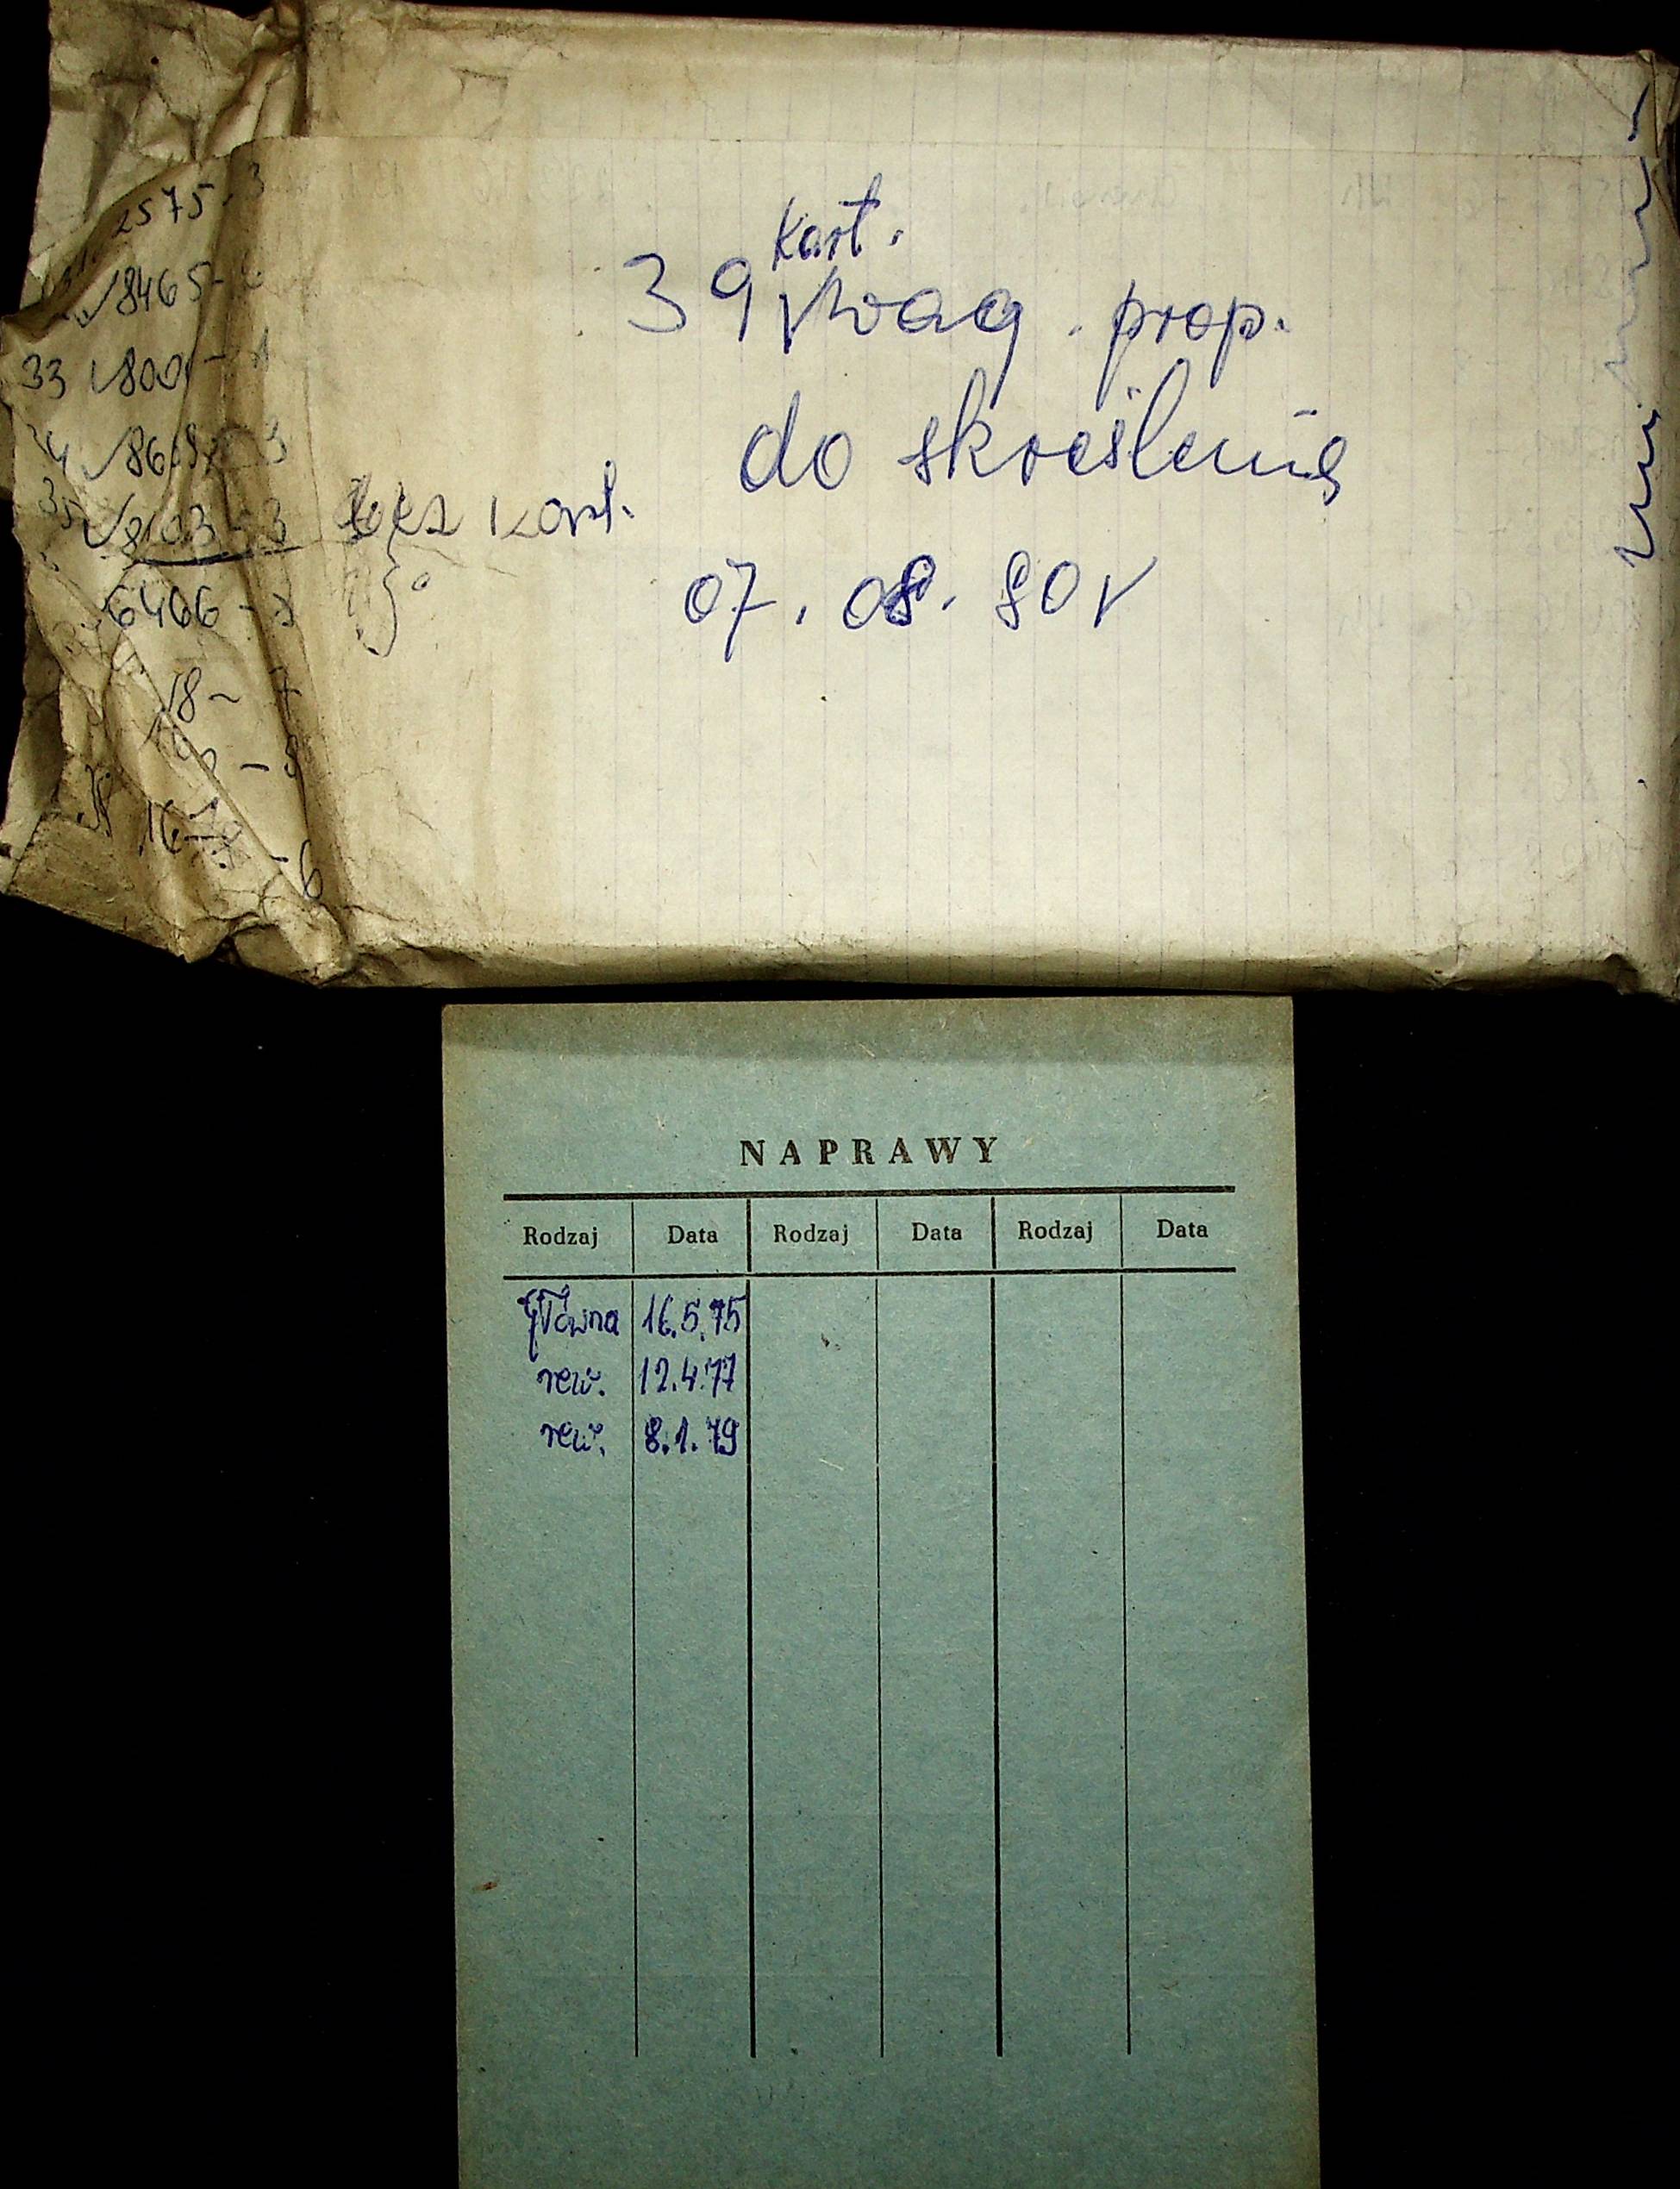 2575-3
8465-
33 800
8103-3 bez kart.
6466-
18-7
16
-6
kart.
39 wag. prop.
do skreślenia
07. 08. 80r
NAPRAWY
Rodzaj Data Rodzaj Data Rodzaj Data
główna 16.5.75
rew. 12.4.77
rew. 8.1.79